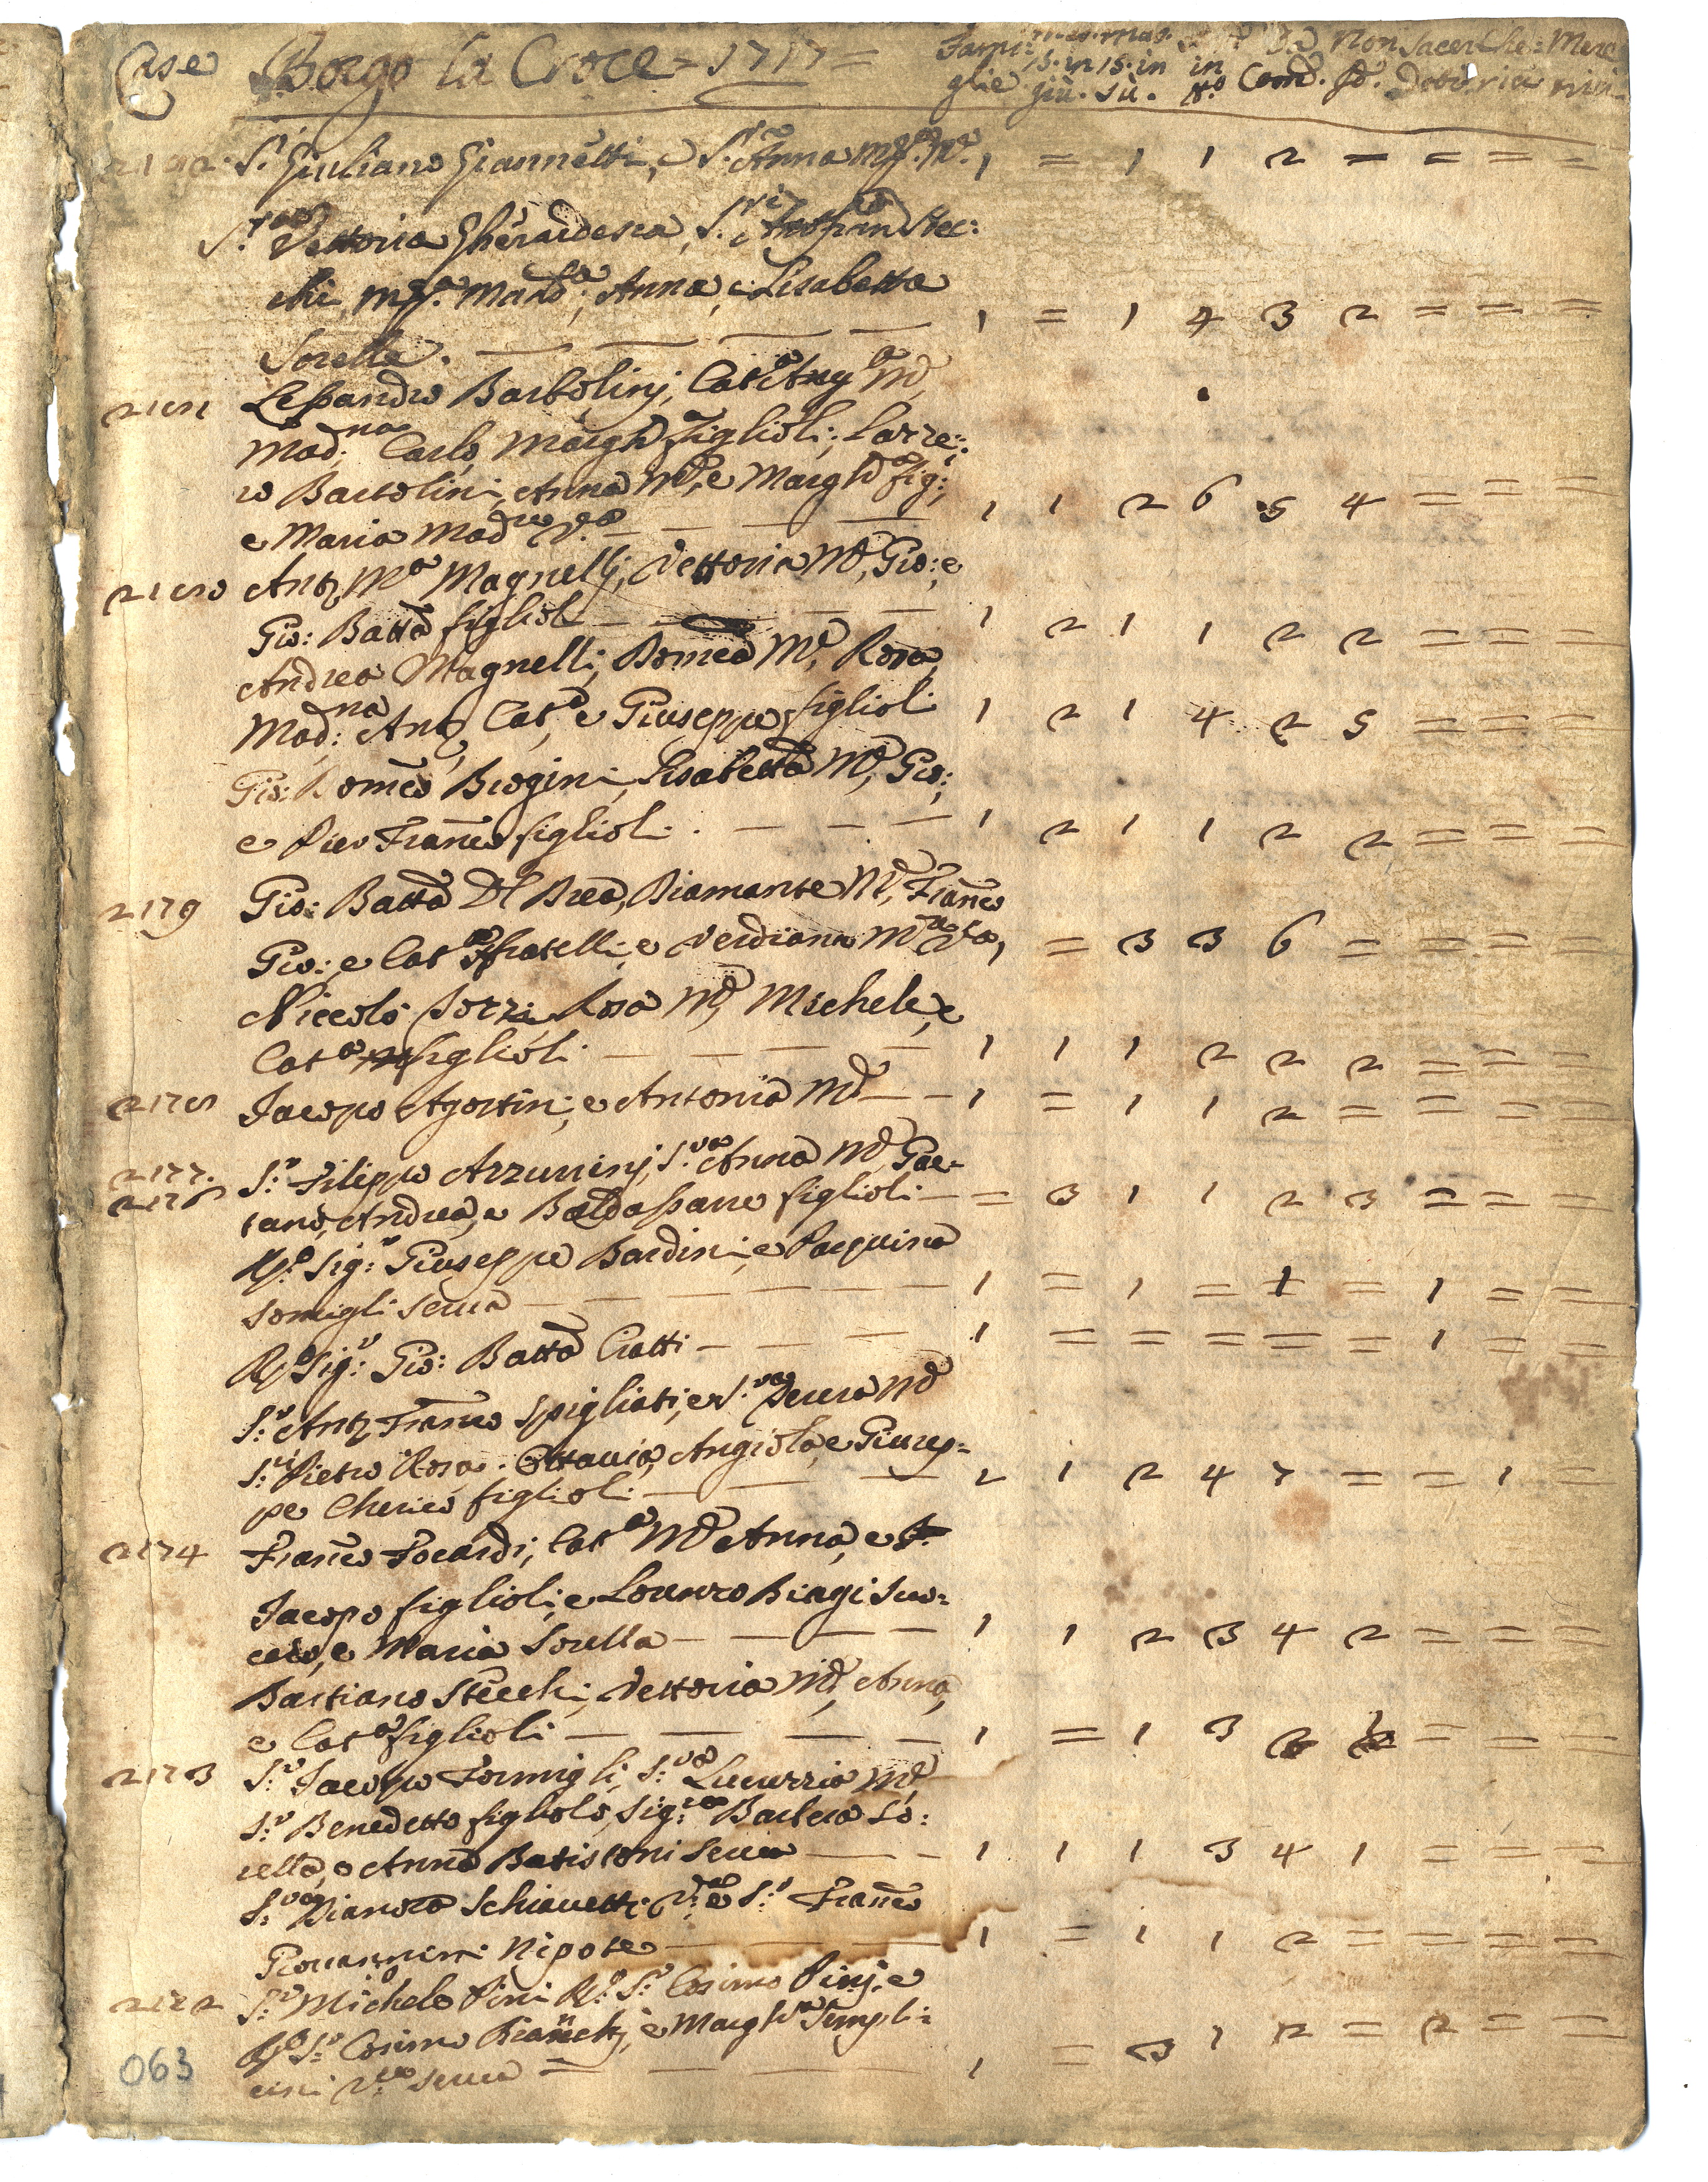 Case Borgo la Croce = 1717 = Fami: mas. mas. Da Non Sacer Che: Mere
15. in 15. in in
glie giù. sù. Com. Doti rici
S.r Giuliano Giannetti, e S.ra Anna M.e 1 = 1 1 2 = = = =
S.ra Vettoria Gherardesca, S.ri Stec:
chi, Mad.a, Anna, e Lisabetta
Sorelle. — — — 1 = 1 4 3 2 = = =
2181 Lessandro Bartolinj, Cat.a M.e
Mad:na Carlo Margh.a figlioli; Lorre:
ro Bartolini, Anna M.e, e Margh.a fig:,
e Maria Mad.re V.a — — — 1 1 2 6 5 4 = = =
2180 Ant.o M.a Magnellj, Vettoria M.e, Gio: e
Gio: Batt.a figlioli — — — 1 2 1 1 2 2 = = =
Andrea Magnelli, Domen.a M.e, Rosa,
Mad:na Ant.o Cat.a e Giuseppe figlioli 1 2 1 4 2 5 = = =
Gio: Domen.o Biogini, Lisabetta M.e, Gio:,
e Pier Fran.co figlioli. — — — 1 2 1 1 2 2 = = =
2179 Gio: Batta Del Brea, Diamante M.e, Fran.co
Gio: e Cat.a fratelli, e Verdiana M.re V.a 1 = 3 3 6 = = = =
Niccolò Rosa M.e Michele, e
Cat.a figlioli — — — — 1 1 1 2 2 2 = = =
2178 Jacopo Agostini, e Antonia M.e — — 1 = 1 1 2 = = = =
2177. S.r Filippo Azzurrinj, S.ra Anna M.e Gae-
2176 tano, Andrea, e Baldassarre figlioli — = 3 1 1 2 3 = = =
R.do Sig:r Giuseppe Bardini, e Pasquina
Somigli Serva — — — — — — 1 = 1 = 1 = 1 = =
R.do Sig:r Gio: Batta Ciatti — — — 1 = = = = = 1 = =
S:r Ant.o Fran.co Spigliati, e S:ra M.e
S:ri Pietro Rosa Ottavia, Angiola, e Giusep=
pe Cherico figlioli — — — 2 1 2 4 7 = = 1 =
2174 Fran.co Focardi, Cat.a M.e Anna, e
Jacopo figlioli, e Lorenzo Biagi Suo:
cero, e Maria Sorella — — — — 1 1 2 3 4 2 = = =
Bastiano Stecchi, Vettoria M.e, Anna,
e Cat.a figlioli — — — — 1 = 1 3 = = =
2173 S:r Jacopo Formigli, S:ra Lucrezia M.e
S:r Benedetto figliolo, Sig:ra Barbera So:
rella, e Anna Batistoni Serva — — 1 1 1 3 4 1 = = =
S:ra Dianora Schiavetti V.a e S:r Fran.co
Giovannini Nipote — — — — 1 = 1 1 2 = = = =
2172 S:r Michele Pini R.do S:r Cosimo Pinj, e
R.do S:r Cosimo Bianchj, e Margh.a Simpli=
cini V.a serva = — — — 1 = 3 1 2 = 2 = =
063